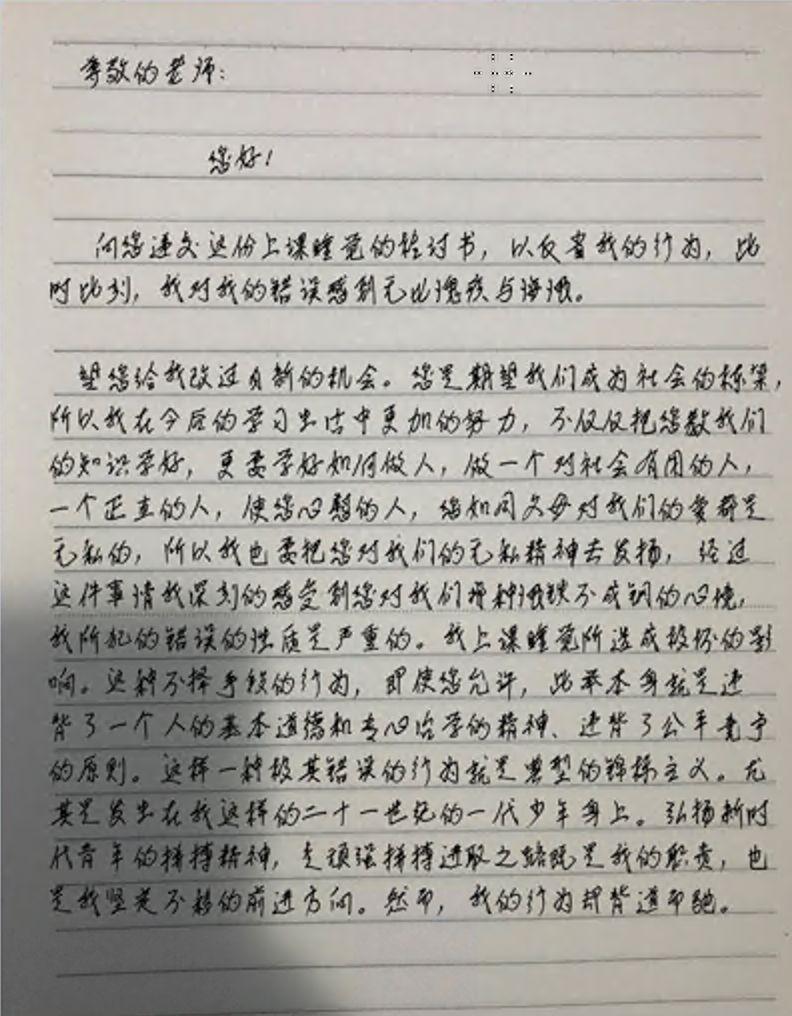 尊敬的老师:
您好!
向您递交这份上课睡觉的检讨书,以反省我的行为,此
时此刻,我对我的错误感到无比愧疚与悔恨。
望您给我改过自新的机会。您是期望我们成为社会的栋梁,
所以我在今后的学习生活中更加的努力,不仅仅把您教我们
的知识学好,更要学好如何做人,做一个对社会有用的人,
一个正直的人,使您心慰的人,您如同父母对我们的爱都是
无私的,所以我也要把您对我们的无私精神去发扬,经过
这件事请我深刻的感受到您对我们那种恨铁不成钢的心境,
我所犯的错误的性质是严重的。我上课睡觉所造成极坏的影
响。这种不择手段的行为,即使您允许,此举本身就是违
背了一个人的基本道德和专心治学的精神、违背了公平竞争
的原则。这样一种极其错误的行为就是典型的锦标主义。尤
其是发生在我这样的二十一世纪的一代少年身上。弘扬新时
代青年的拼搏精神,走顽强拼搏进取之路既是我的职责,也
是我坚定不移的前进方向。然而,我的行为却背道而驰。